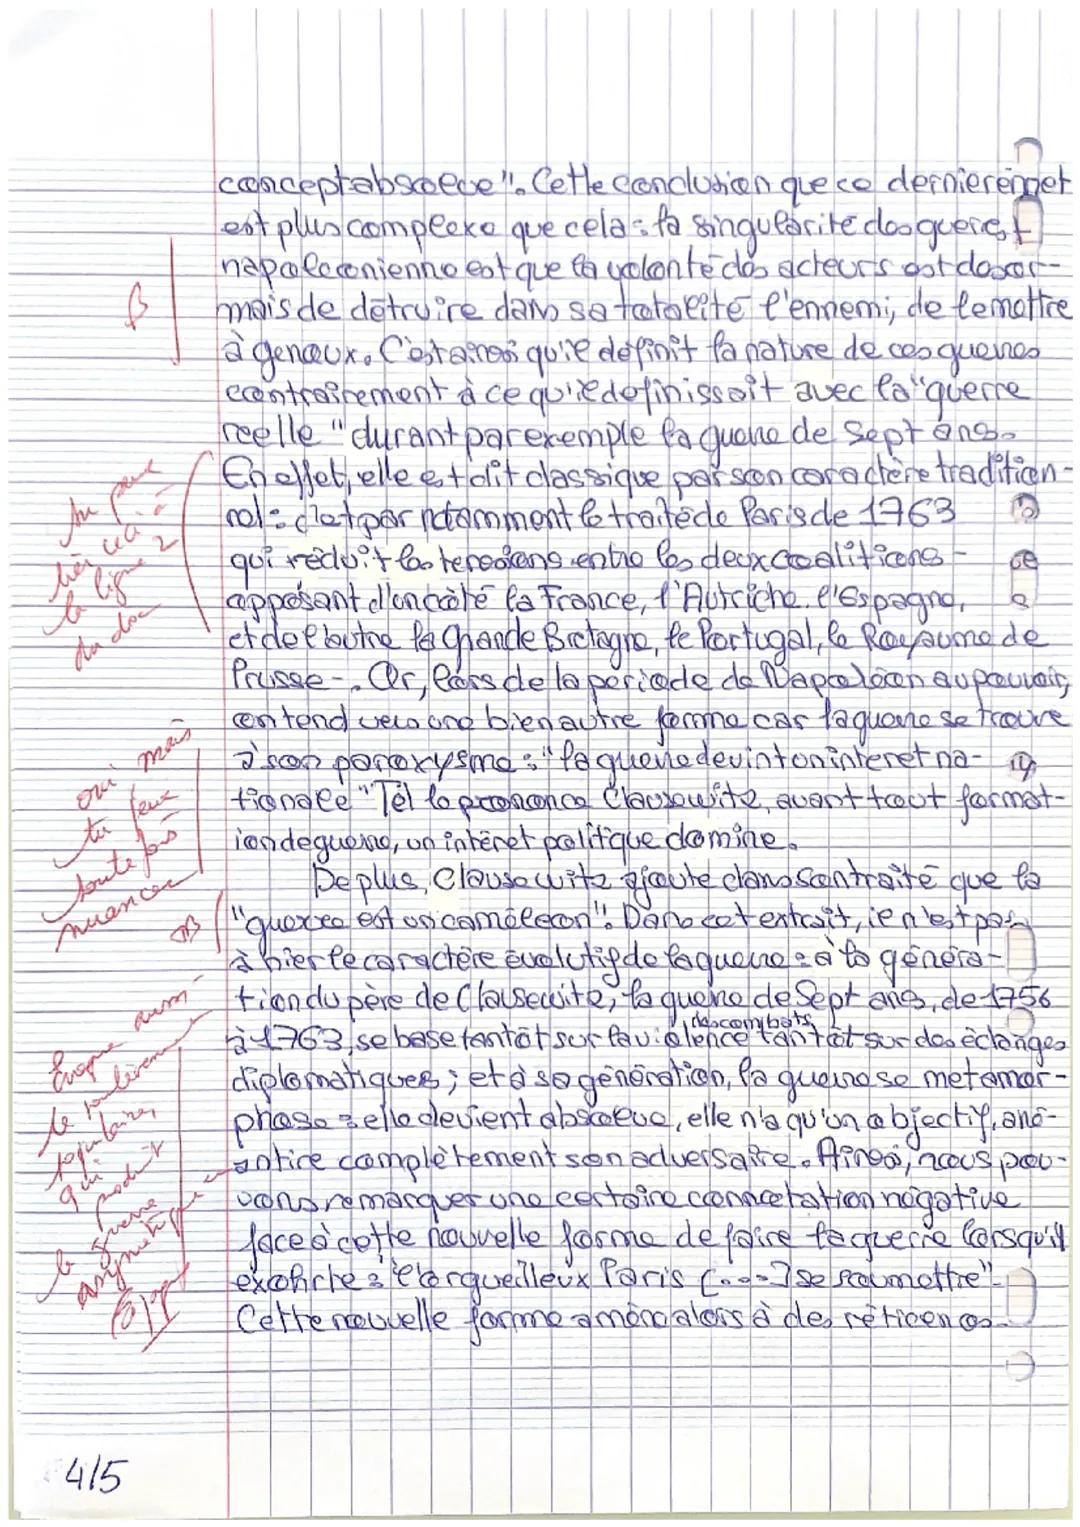 concept absolue". Cette conclusion que ce dernier émet
est plus complexe que cela : la singularité des guerres
napoléonienne est que la volonté des acteurs est désor-
mais de détruire dans sa totalité l'ennemi, de le mettre
à genoux. C'est ainsi qu'il définit la nature de ces guerres
contrairement à ce qu'il définissait avec la "guerre
réelle" durant par exemple la guerre de Sept ans.
En effet, elle est dit classique par son caractère tradition-
nel : c'est par notamment le traité de Paris de 1763
qui réduit les tensions entre les deux coalitions -
opposant d'un côté la France, l'Autriche, l'Espagne,
et de l'autre la Grande Bretagne, le Portugal, le Royaume de
Prusse -. Or, lors de la période de Napoléon au pouvoir,
on tend vers une bien autre forme car la guerre se trouve
à son paroxysme : "la guerre devint on interet na-
tionale" Tel le prononce Clausewitz, avant tout format-
ion de guerre, un intérêt politique domine.
De plus, Clausewitz ajoute dans son traité que la
"guerre est un caméléon". Dans cet extrait, il n'est pas
à nier le caractère évolutif de la guerre : à la généra-
tion du père de Clausewitz, la guerre de Sept ans, de 1756
à 1763, se base tantôt sur la violence des combats, tantôt sur des échanges
diplomatiques ; et à sa génération, la guerre se métamor-
phose : elle devient absolue, elle n'a qu'un objectif, ané-
antire complètement son adversaire. Ainsi, nous pou-
vons remarquer une certaine connotation négative
face à cette nouvelle forme de faire la guerre lorsqu'il
"l'orgueilleux Paris [...] se soumettre".
Cette nouvelle forme amène alors à des réticences.
B
Tu peux
lier ceci à
la ligne 2
du doc
oui mais
tu peux
toute fois
nuancer
TB
Evoque aussi
le soulèvement
populaire,
qui produit
la guerre
asymétrique
Esp
4/5